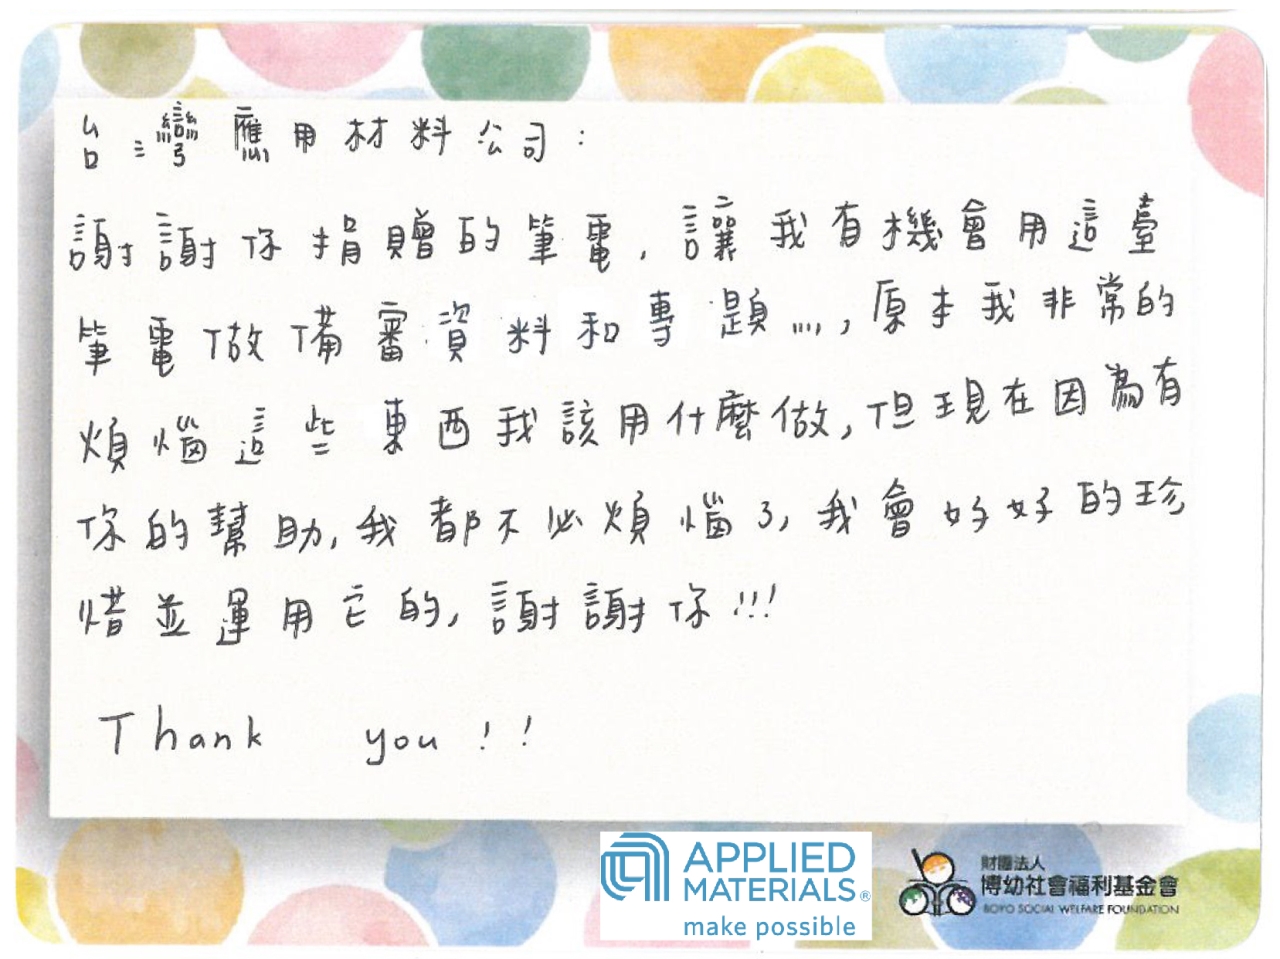 台灣應用材料公司：
謝謝你捐贈的筆電，讓我有機會用這臺
筆電做備審資料和專題……，原本我非常的
煩惱這些東西我該用什麼做，但現在因為有
你的幫助，我都不必煩惱了，我會好好的珍
惜並運用它的，謝謝你!!!
Thank you!!
APPLIED
MATERIALS®
make possible
財團法人
博幼社會福利基金會
BOYO SOCIAL WELFARE FOUNDATION